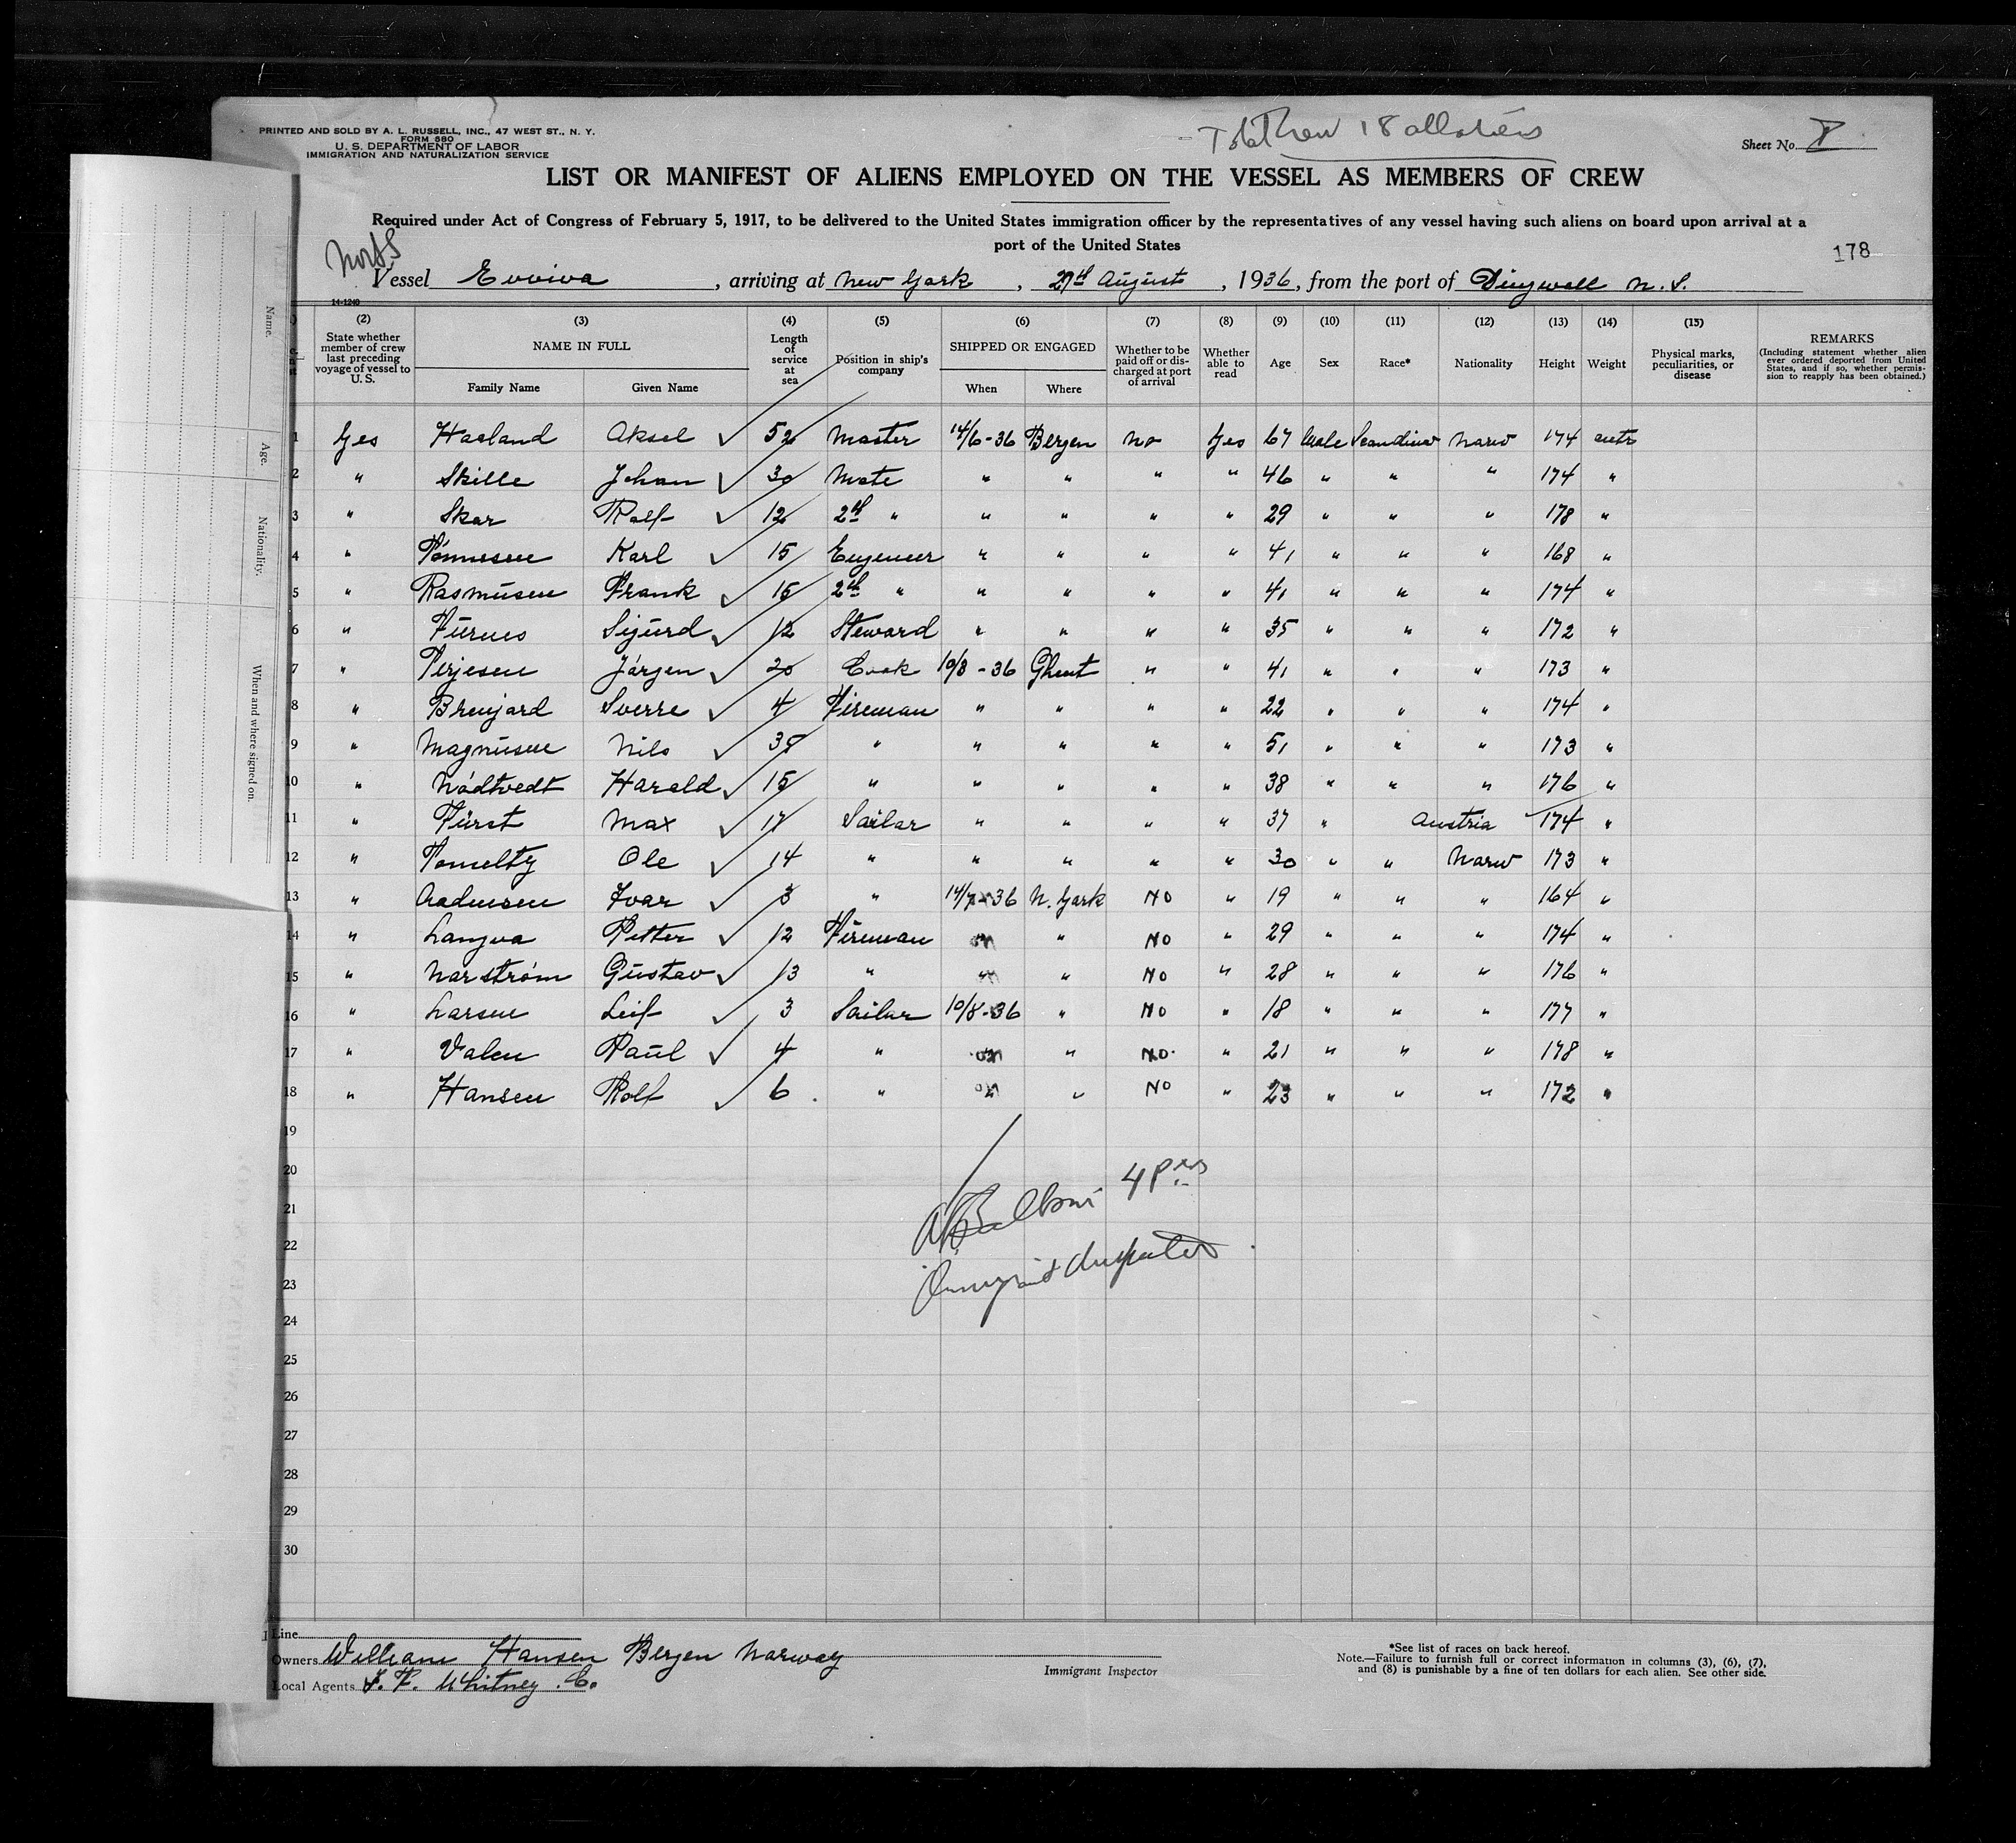 PRINTED AND SOLD BY A. L. RUSSELL, INC., 47 WEST ST., N. Y.
FORM 680
U. S. DEPARTMENT OF LABOR
IMMIGRATION AND NATURALIZATION SERVICE
Total Crew 18 all aliens
Sheet No.
LIST OR MANIFEST OF ALIENS EMPLOYED ON THE VESSEL AS MEMBERS OF CREW
Required under Act of Congress of February 5, 1917, to be delivered to the United States immigration officer by the representatives of any vessel having such aliens on board upon arrival at a
port of the United States
178
Vessel Evviva, arriving at New York, 27th August, 1936, from the port of Dingwall N. S.
14-1240
(2) (3) (4) (5) (6) (7) (8) (9) (10) (11) (12) (13) (14) (15)
State whether member of crew last preceding voyage of vessel to U. S. NAME IN FULL Length of service at sea Position in ship's company SHIPPED OR ENGAGED Whether to be paid off or discharged at port of arrival Whether able to read Age Sex Race* Nationality Height Weight Physical marks, peculiarities, or disease REMARKS
(Including statement whether alien ever ordered deported from United States, and if so, whether permission to reapply has been obtained.)
Family Name Given Name When Where
1 Yes Haaland Aksel 52 Master 14/6-36 Bergen no Yes 67 Male Scandinav Norw 174
2 " Skille Johan 30 Mate " " " " 46 " " " 174 "
3 " Skar Rolf 12 2d " " " " " 29 " " " 178 "
4 " Tönnesen Karl 15 Engeneer " " " " 41 " " " 168 "
5 " Rasmusen Frank 15 2d " " " " " 41 " " " 174 "
6 " Furnes Sigurd 12 Steward " " " " 35 " " " 172 "
7 " Terjesen Jörgen 20 Cook 10/8-36 Ghent " " 41 " " " 173 "
8 " Sverre 4 Fireman " " " " 22 " " " 174 "
9 " Magnusen Nils 35 " " " " " 51 " " " 173 "
10 " Nödtvedt Harald 15 " " " " " 38 " " " 176 "
11 " Fürst Max 17 Sailor " " " " 37 " Austria 174 "
12 " Ole 14 " " " " " 30 " " Norw 173 "
13 " Aadnesen Ivar 3 " 14/7-36 N. York NO " 19 " " " 164 "
14 " Langva Petter 12 Fireman " " NO " 29 " " " 174 "
15 " Norström Gustav 13 " " " NO " 28 " " " 176 "
16 " Larsen Leif 3 Sailor 10/8-36 " NO " 18 " " " 177 "
17 " Valen Paul 4 " " " NO " 21 " " " 178 "
18 " Hansen Rolf 6 " " " NO " 23 " " " 172 "
19
20
21
22
23
24
25
26
27
28
29
30
Immigrant Inspector
Line
Owners William Hansen Bergen Norway
Local Agents J. F. Whitney Co.
Immigrant Inspector
*See list of races on back hereof.
Note.—Failure to furnish full or correct information in columns (3), (6), (7),
and (8) is punishable by a fine of ten dollars for each alien. See other side.
Name.
Age.
Nationality.
When and where signed on.